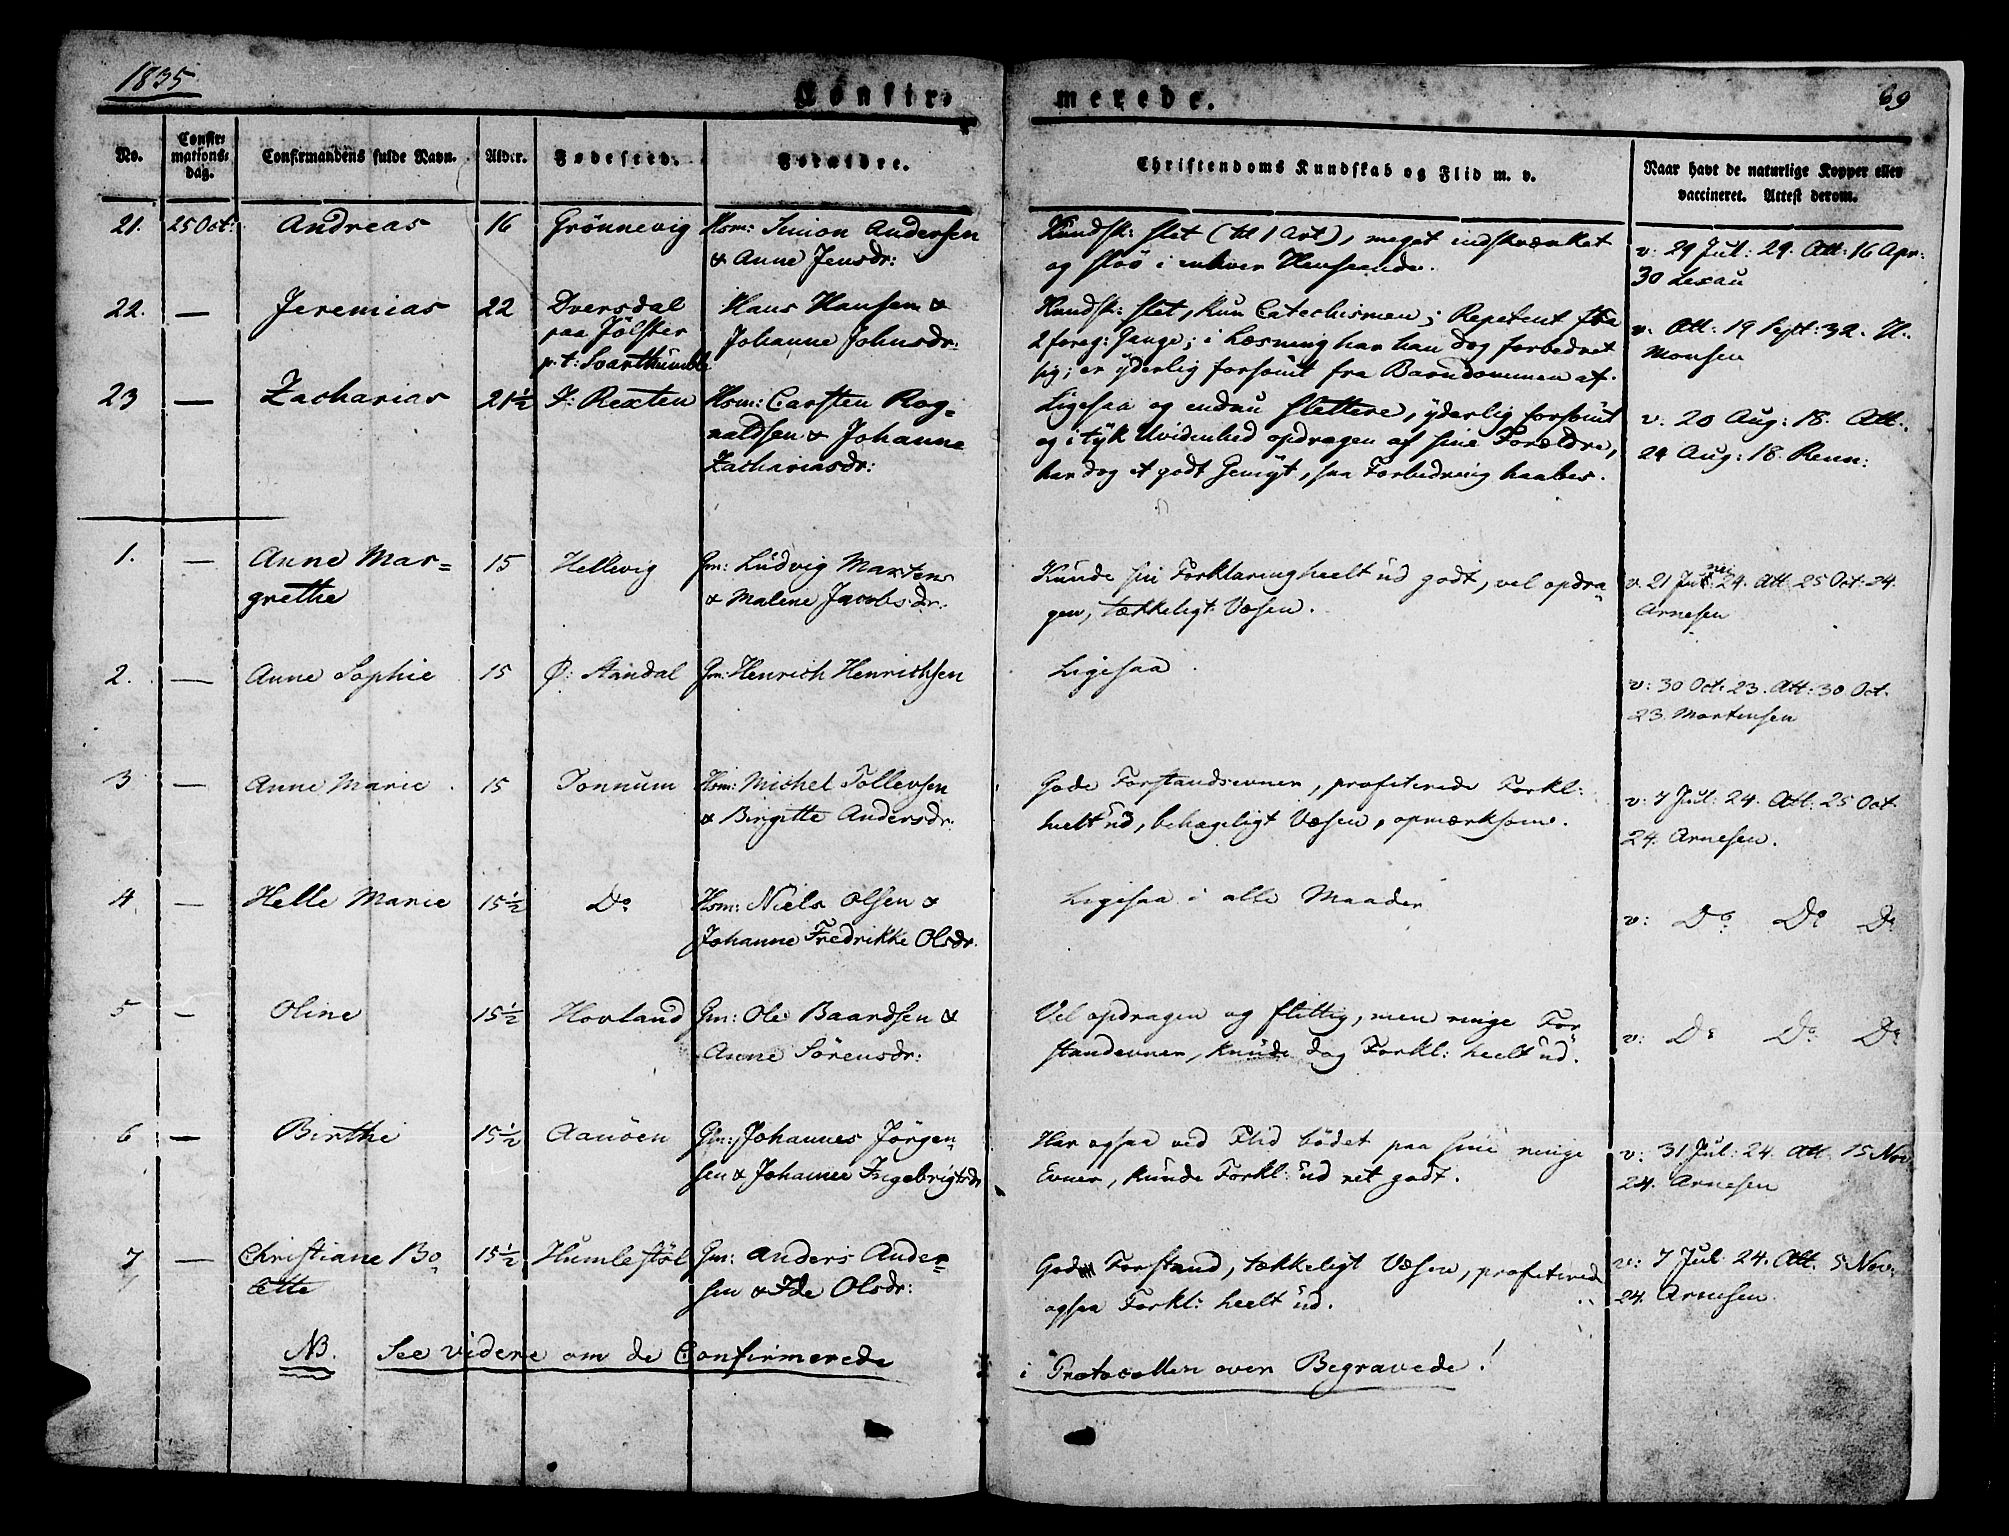 1835
Confir-
merede.
69
No.
Confir-
mations-
dag.
Confirmandens fulde Navn.
Alder.
Fødested.
Forældre.
Christendoms Kundskab og Flid m. v.
Naar havt de naturlige Kopper eller
vaccineret. Attest derom.
21. 25 Oct: Andreas 16 Grönnevig Hsm: Simon Andersen
& Anne Jensdr:
Kundsk: slet (til 1 Art), meget indskrænket
og sløv i enhver Henseende.
v: 29 Jul: 29. Att: 16 Apr:
30 Lexau
22. — Jeremias 22 Dversdal
paa Jölster
p: t: Svarthumle
Hans Hansen &
Johanne Johnsdr:
Kundsk: slet, kun Catechismen; Repetent fra
2 foreg: Gange; i Læsning har han dog forbedret
sig; er yderlig forsömt fra Barndommen af.
v: Att: 19 Sept: 32. H.
Monsen
23 — Zacharias 21½ Y: Rexten Hsm: Carsten Rog-
naldsen & Johanne
Zachariasdr:
Ligesaa og endnu slettere, yderlig forsömt
og i tyk Uvidenhed opdragen af sine Forældre,
har dog et godt Gemyt, saa Forbedring haabes.
v: 20 Aug: 18. Att:
24 Aug: 18. Renn:
1. — Anne Mar=
grethe
15 Hellevig Gm: Ludvig Martens
& Malene Jacobsdr:
Kunde sin Forklaring heelt ud godt, vel opdra-
gen, tækkeligt Væsen.
v. 21 Juni 24. Att. 25 Oct: 24.
Arnesen
2. — Anne Sophie 15 Ø: Standal Gm: Henrich Henrichsen
Ligesaa.
v: 30 Oct: 23. Att: 30 Oct.
23. Mortensen
3 — Anne Marie 15 Tonnum Hsm: Michel Tollevsen
& Birgitte Andersdr:
Gode Forstandsevner, profiterede Forkl:
heelt ud, behageligt Væsen, opmærksom.
v: 7 Jul: 24. Att: 25 Oct
24. Arnesen.
4 — Helle Marie 15½ Do Hsm: Niels Olsen &
Johanne Fredrikke Olsdr.
Ligesaa i alle Maader
v: Do Do Do
5 — Oline 15½ Hovland Gm: Ole Baardsen &
Anne Sörensdr:
Vel opdragen og flittig, men ringe For-
standevner, kunde dog Forkl: heelt ud.
v: Do Do Do
6 — Birthe 15½ Aanöen Gm: Johannes Jörgen-
sen & Johanne Ingebrigtsdr
Har ogsaa ved Flid bödet paa sine ringe
Evner, kunde Forkl: ud ret godt.
v: 31 Jul: 24. Att. 15 Nov
24. Arnesen
7 — Christiane Bo-
lette
15½ Humlestöl Gm: Anders Ander=
sen & Ide Olsdr:
God Forstand, tækkeligt Væsen, profiterede
ogsaa Forkl: heelt ud.
v: 7 Jul 24. Att: 5 Nov:
24. Arnesen.
NB. See videre om de Confirmerede
i Protocollen over Begravede!